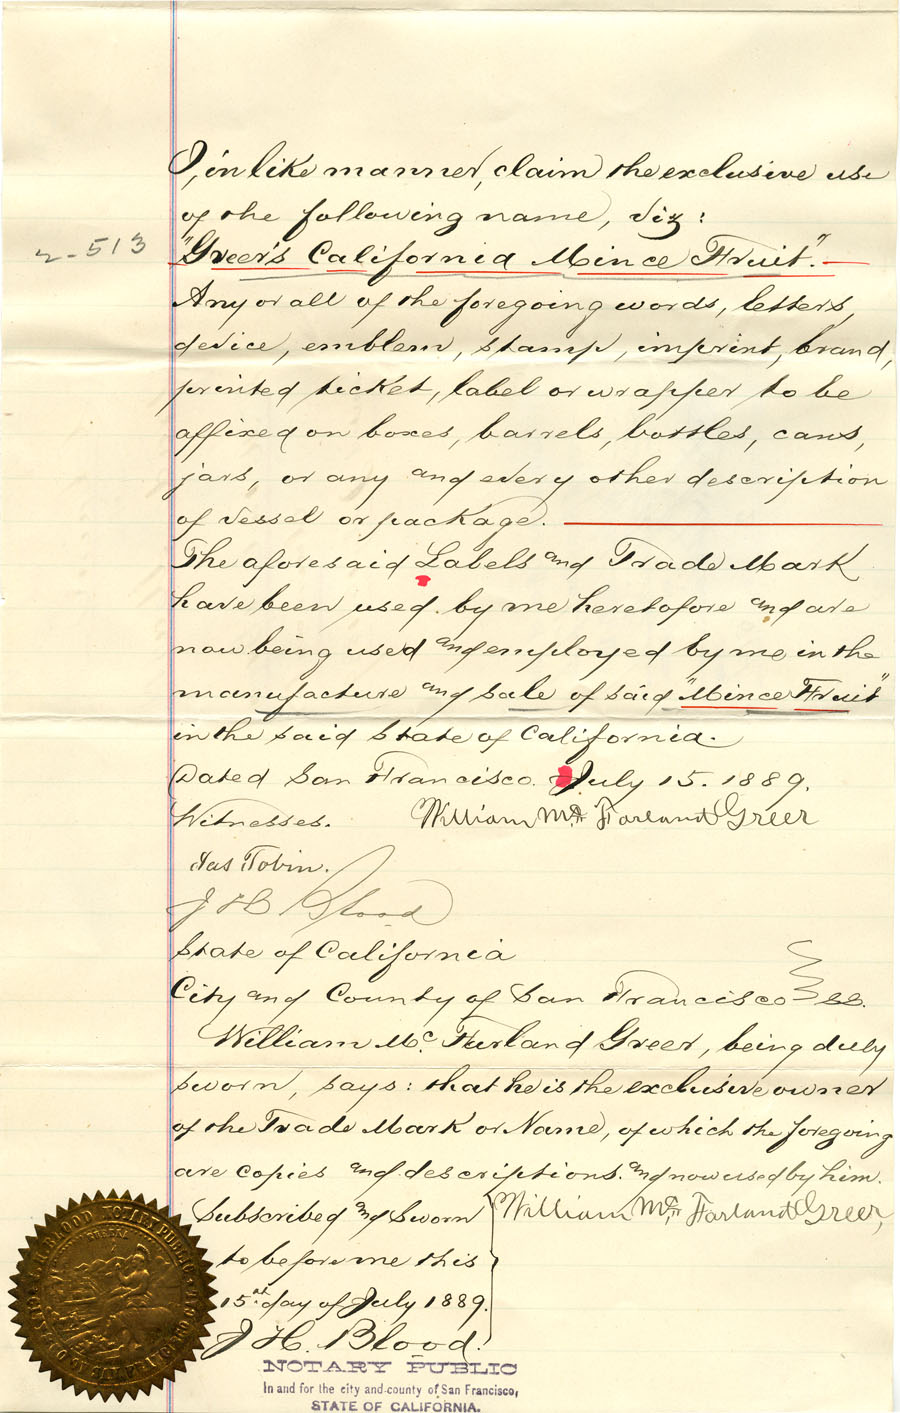 I, in like manner, claim the exclusive use
of the following name, viz:
2-513
"Greer's California Mince Fruit".
Any or all of the foregoing words, letters,
device, emblem, stamp, imprint, brand,
printed ticket, label or wrapper to be
affixed on boxes, barrels, bottles, cans,
jars, or any and every other description
of vessel or package.
The aforesaid Labels and Trade Mark
have been used by me heretofore and are
now being used and employed by me in the
manufacture and sale of said "Mince Fruit"
in the said State of California.
Dated San Francisco. July 15. 1889.
Witnesses. William Mc Farland Greer
Jas Tobin.
J H Blood
State of California
City and County of San Francisco ss.
William Mc Farland Greer, being duly
sworn, says: that he is the exclusive owner
of the Trade Mark or Name, of which the foregoing
are copies and descriptions. and now used by him.
Subscribed and Sworn William Mc Farland Greer,
to before me this
15th day of July 1889.
J H. Blood.
NOTARY PUBLIC
In and for the city and county of San Francisco,
STATE OF CALIFORNIA.